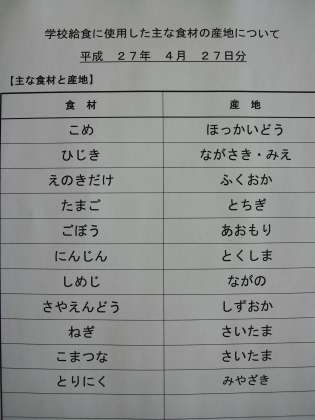 学校給食に使用した主な食材の産地について
平成　２７年　４月　２７日分
【主な食材と産地】
食　材　産　地
こめ　ほっかいどう
ひじき　ながさき・みえ
えのきだけ　ふくおか
たまご　とちぎ
ごぼう　あおもり
にんじん　とくしま
しめじ　ながの
さやえんどう　しずおか
ねぎ　さいたま
こまつな　さいたま
とりにく　みやざき